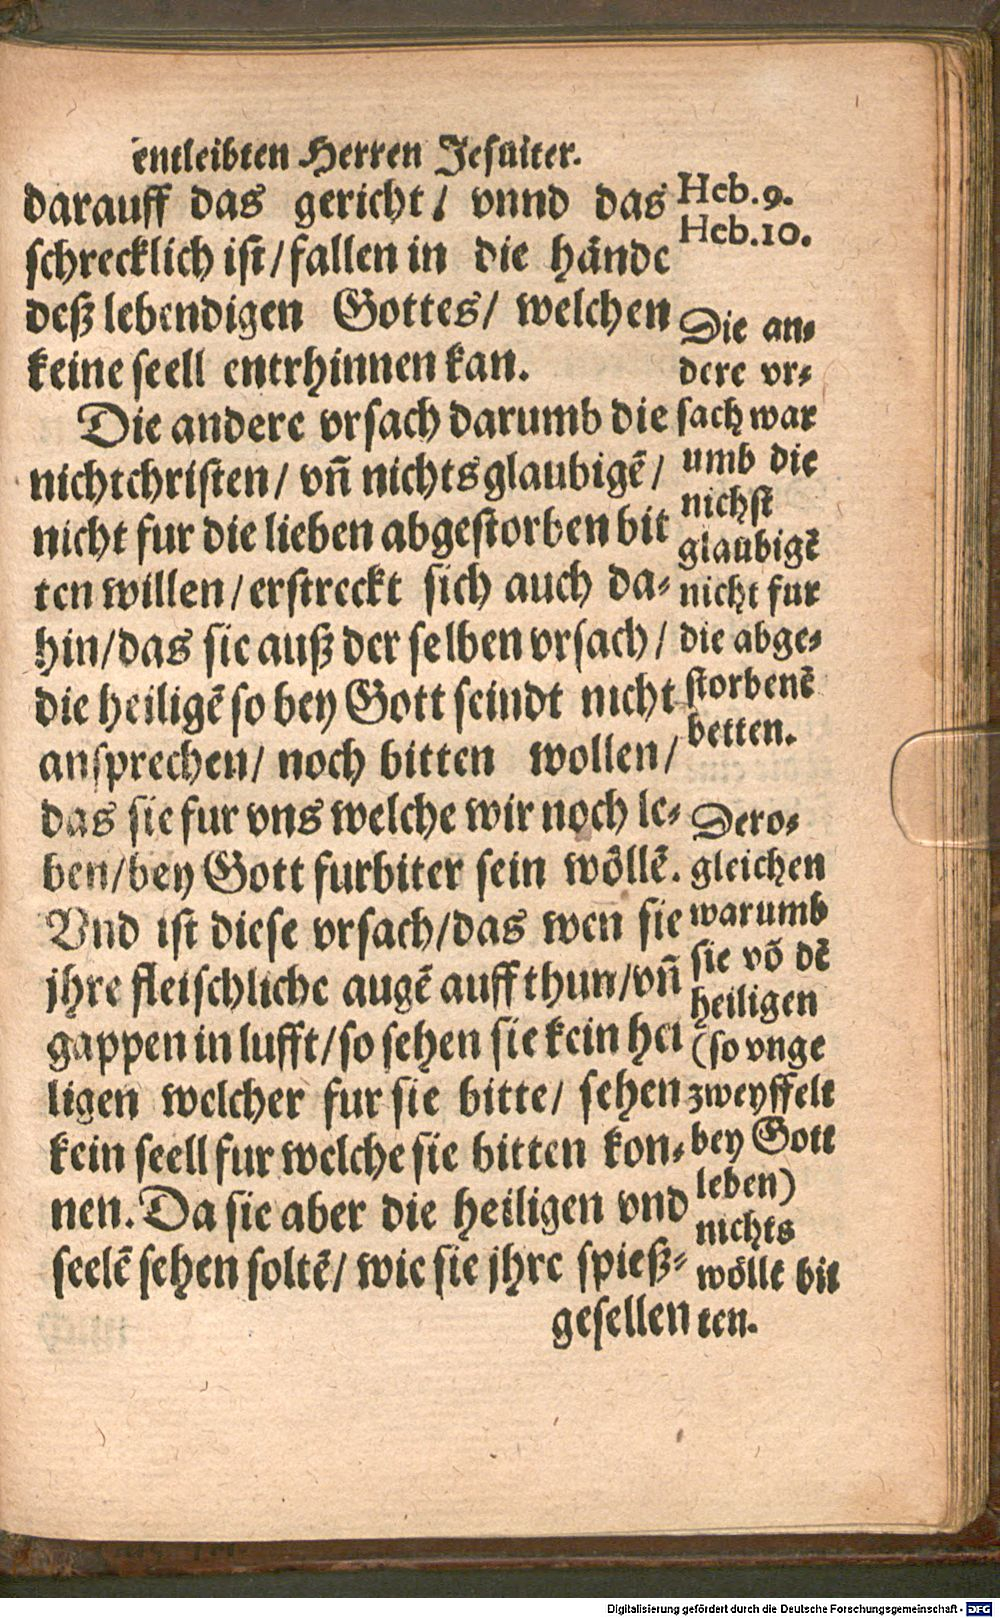 entleibten Herren Jesuiter.
darauff das gericht / vnnd das
schrecklich ist / fallen in die hände
deß lebendigen Gottes / welchen
keine seell entrhinnen kan.
Die andere vrsach darumb die
nichtchristen / vn̄ nichtsglaubigē /
nicht fur die lieben abgestorben bit
ten willen / erstreckt sich auch da-
hin / das sie auß der selben vrsach /
die heiligē so bey Gott seindt nicht
ansprechen / noch bitten wollen /
das sie fur vns welche wir noch le-
ben / bey Gott furbiter sein wöllē.
Vnd ist diese vrsach / das wen sie
jhre fleischliche augē auff thun / vn̄
gappen in lufft / so sehen sie kein hei
ligen welcher fur sie bitte / sehen
kein seell fur welche sie bitten kon-
nen. Da sie aber die heiligen vnd
seelē sehen soltē / wie sie jhre spieß-
gesellen
Heb. 9.
Heb. 10.
Die an-
dere vr-
sach war
umb die
nichst
glaubigē
nicht fur
die abge-
storbenē
betten.
Dero-
gleichen
warumb
sie vō dē
heiligen
(so vnge
zweyffelt
bey Gott
leben)
nichts
wöllē bit
ten.
Digitalisierung gefördert durch die Deutsche Forschungsgemeinschaft - DFG